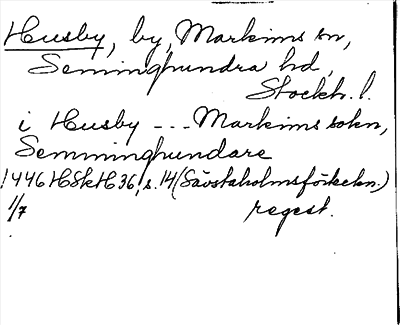 Husby, by, Markims sn,
Seminghundra hd,
Stockh. l.
i Husby --- Markims sokn,
Semminghundare
1446 HSkH 36, s. 14 (Sävstaholmsförteckn.)
1/7 regest.